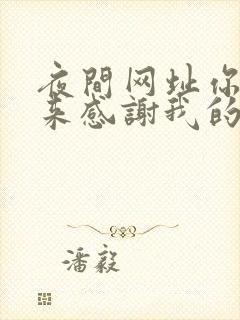 夜間网址你
来感謝我的
潘毅